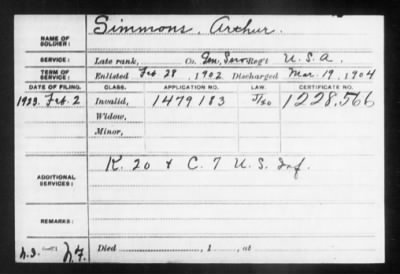 Simmons, Arthur.
NAME OF SOLDIER:
SERVICE: Late rank, Co. Gen. Serv. Reg't U.S.A.
TERM OF SERVICE: Enlisted Feb 28, 1902 Discharged Mar. 19, 1904
DATE OF FILING. CLASS. APPLICATION NO. LAW. CERTIFICATE NO.
1923. Feb. 2 Invalid, 1479183 1228,566
Widow,
Minor,
K. 20 & C. 7 U.S. Inf.
ADDITIONAL SERVICES:
REMARKS:
Died , 1 , at